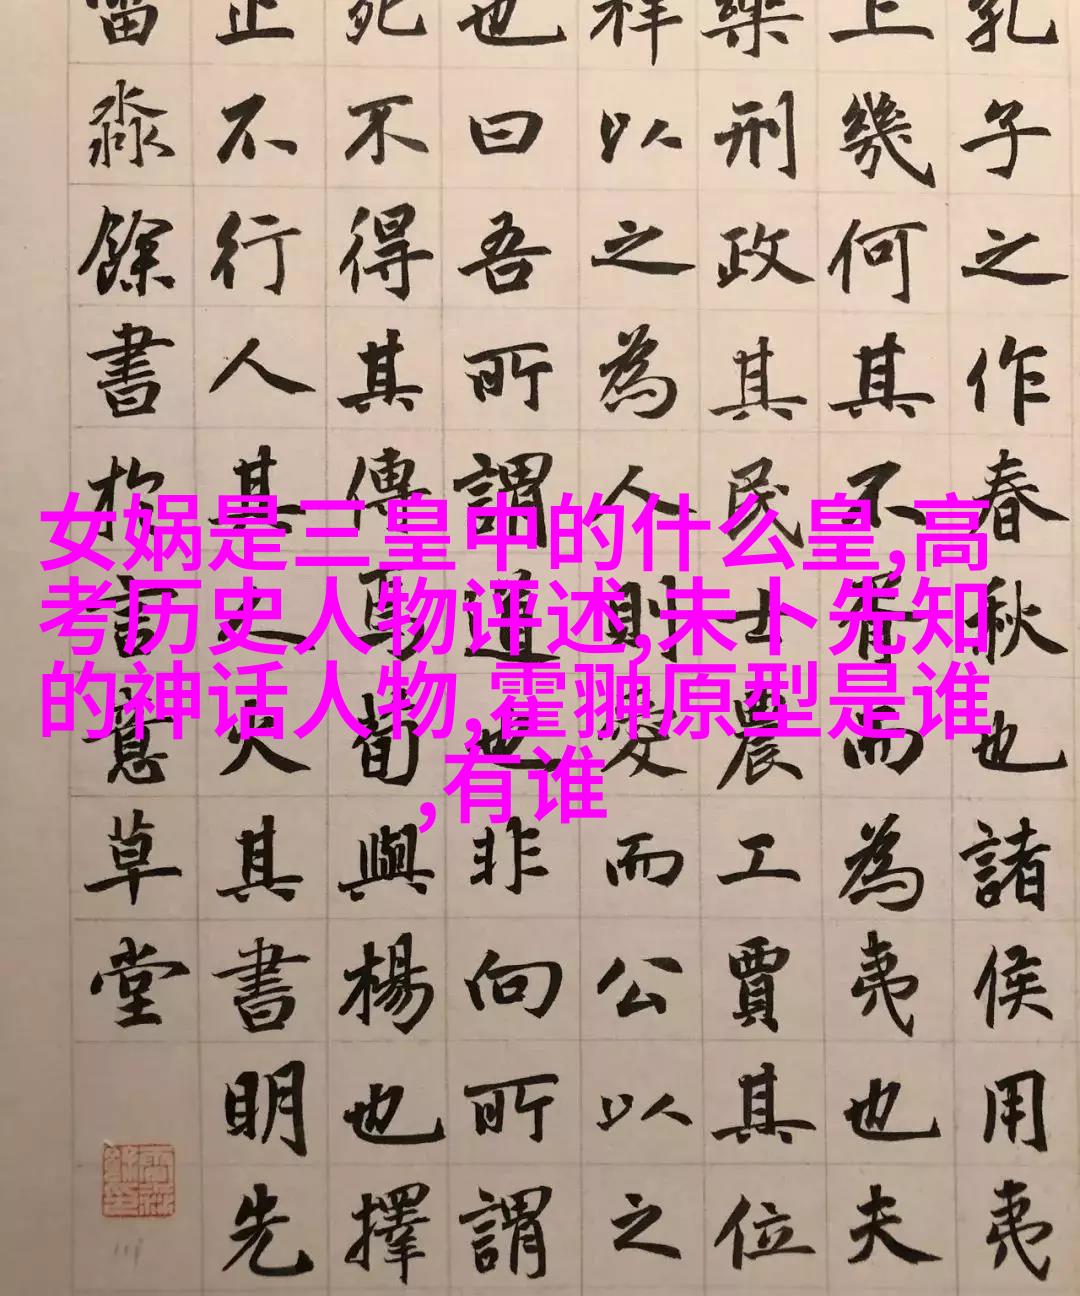 女娲是三皇中的什么皇,高
考历史人物评述,未卜先知
的神话人物,霍翀原型是谁
,有谁
孔子之作春秋也諸侯用夷
上幾何其不胥而為夷也夫
樂刑政其民士農工賈其位
祥以之為人則愛而公以之
也曰吾所謂道也非向所謂
死不得其傳焉荀與楊也擇
止不行人其人火其書明先
淼餘書於言意草堂